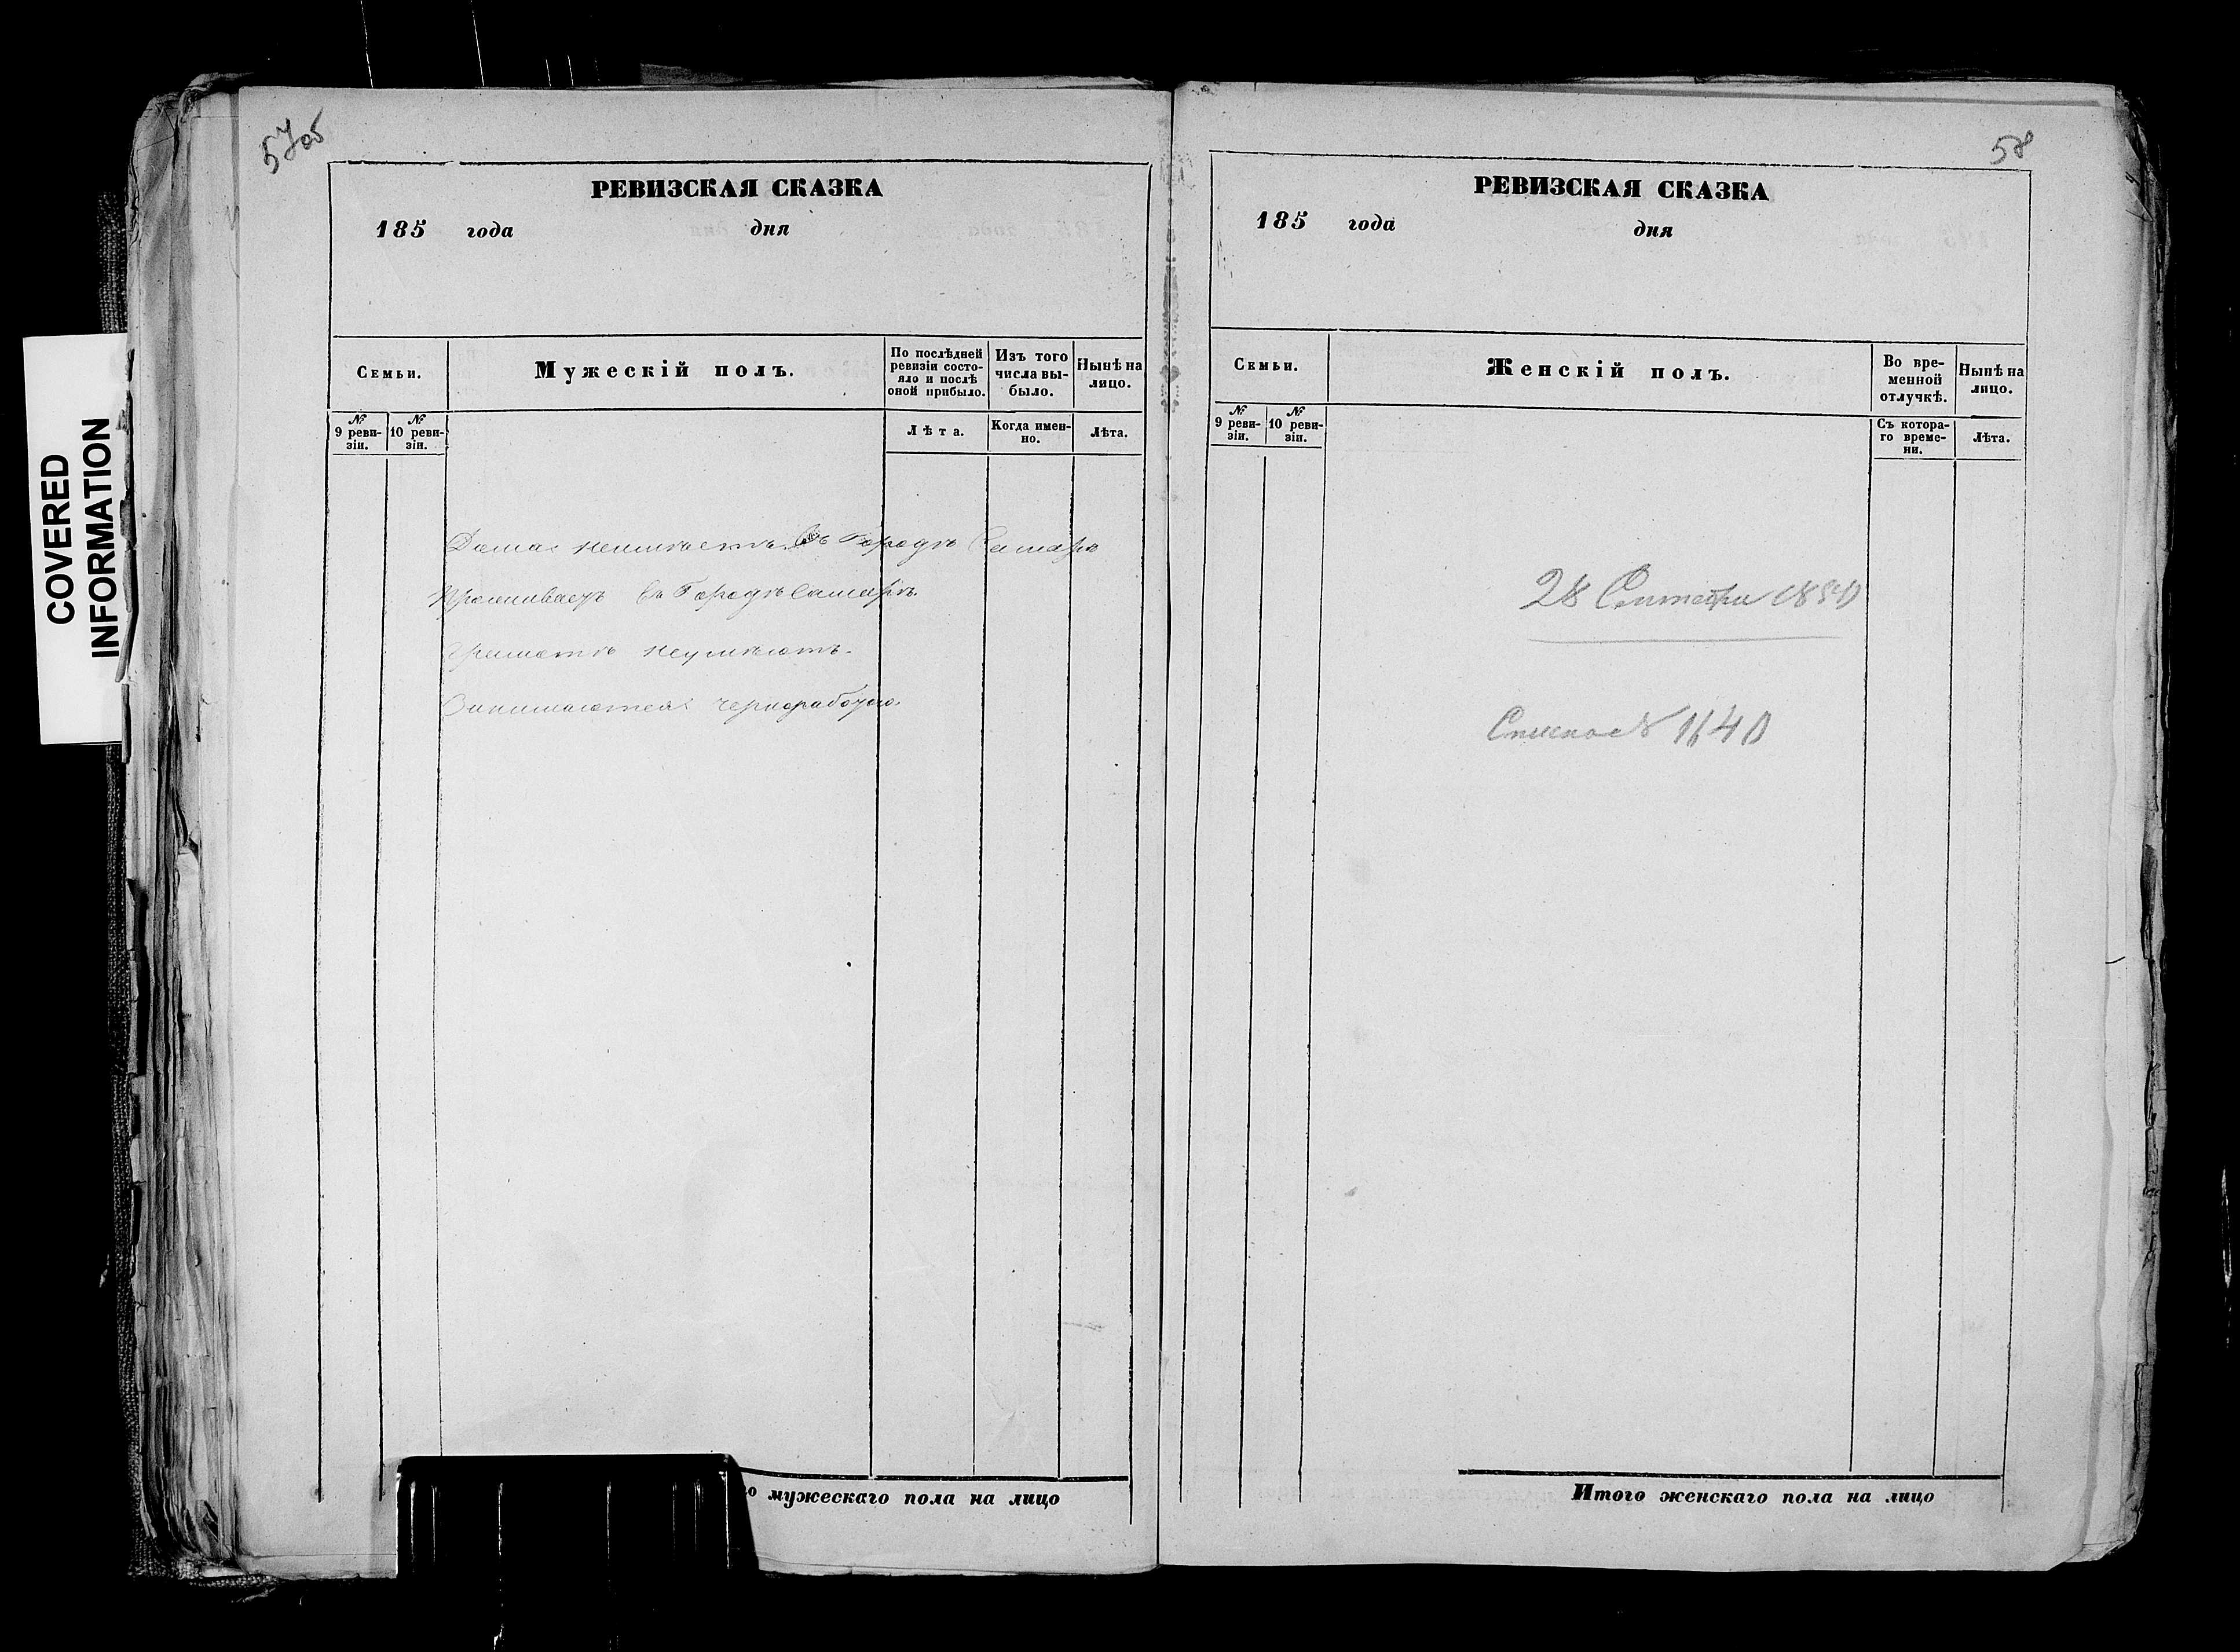 COVERED
INFORMATION
57об
РЕВИЗСКАЯ СКАЗКА
185 года дня
Семьи.
Мужескій полъ.
По послѣдней ревизіи состояло и послѣ оной прибыло.
Изъ того числа выбыло.
Нынѣ на лицо.
№ 9 ревизіи.
№ 10 ревизіи.
Лѣта.
Когда именно.
Лѣта.
Дома неимѣетъ въ Городѣ Самарѣ
Проживаетъ въ Городѣ Самарѣ.
Грамотѣ неумѣютъ.
Занимаются чернорабочею.
мужескаго пола на лицо
58
РЕВИЗСКАЯ СКАЗКА
185 года дня
Семьи.
Женскій полъ.
Во временной отлучкѣ.
Нынѣ на лицо.
№ 9 ревизіи.
№ 10 ревизіи.
Съ котораго времени.
Лѣта.
28 Сентября
1640
Итого женскаго пола на лицо